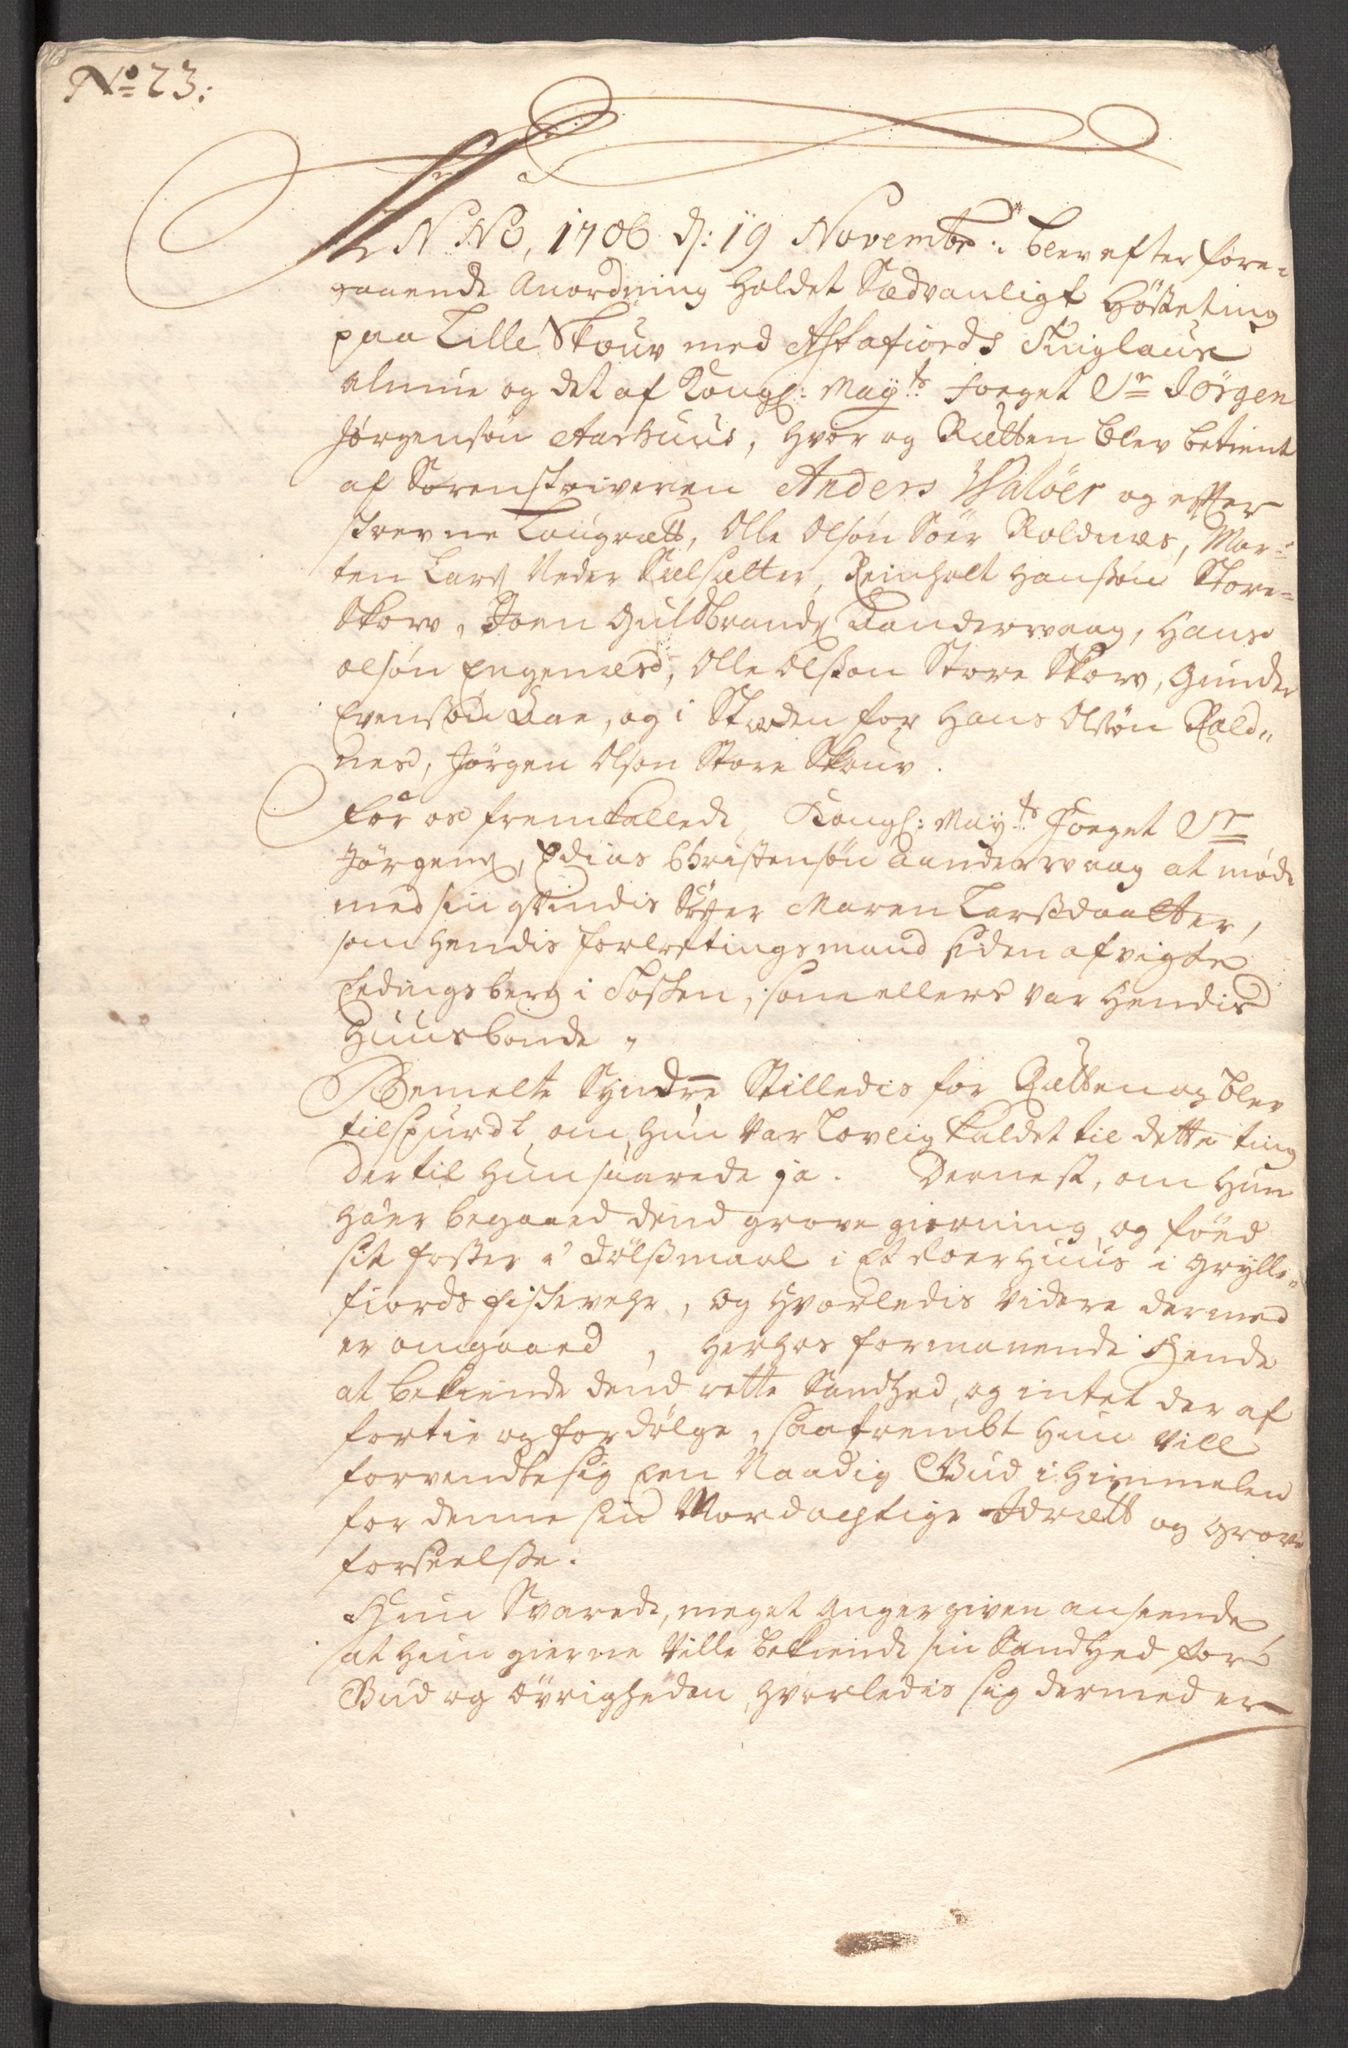 No 23:
ANNO, 1706 d: 19 Novembr: blev efter fore-
gaaende Anordning holdet Sædvanligt Høsteting
paa Lille Skouv med Astafiords Tinglaus
almue og det af Kongl: Mayts foeget Sr Jørgen
Jørgensøn Aarhuus, hvor og Rætten blev betient
af Sorenskriveren Anders Waløer og effter
skrevne Laugrætt, Olle Olsøn Søer Roldnæs, Mor-
ten Lars Neder Sælsætter, Reinholt Hanssøn Store-
Skow, Joen Guldbrands Aanderwaag, Hans
olsøn Engenæs, Olle Olsson Store Skow, Gunder
Evensøn Aae, og i Steden for Hans Olssøn Rold-
nes, Jørgen Olson Store Skouv.
For os fremkallede Kongl: Mayts Foeget Sr
Jørgens, Edias Christensøn Aanderwaag at møde
med sin qvindis Syster Maren Larssdaatter,
som hendis forlostingsmand siden afvigte
Ledingsberg i Fosken, som ellers var hendis
Huusbonde,
Bemelte Syndre Stilledis for Rætten og blev
tilspurdt om hun var Lovlig kaldet til dette ting
der til hun svarede ja. Dernest, om hun
haer begaaed dend grove gierning og føed
sit foster i Dølssmaal i Et Roerhuus i Grylle-
fiords fiskevehr, og hvorledis videre dermed
er omgaaed, herhos formanende Hende
at bekiende dend rette Sandhed, og intet der af
fortie og fordølge, saafrembt hun vill
forvendte sig Een Naadig Gud i Himmelen
for denne sin Mordagtige Idrætt og grove
forseelsse.
Hun Svarede, meget angergiven anseende,
at hun gierne ville bekiende sin Sandhed for
Gud og øvrigheden, hvorledis sig dermed er